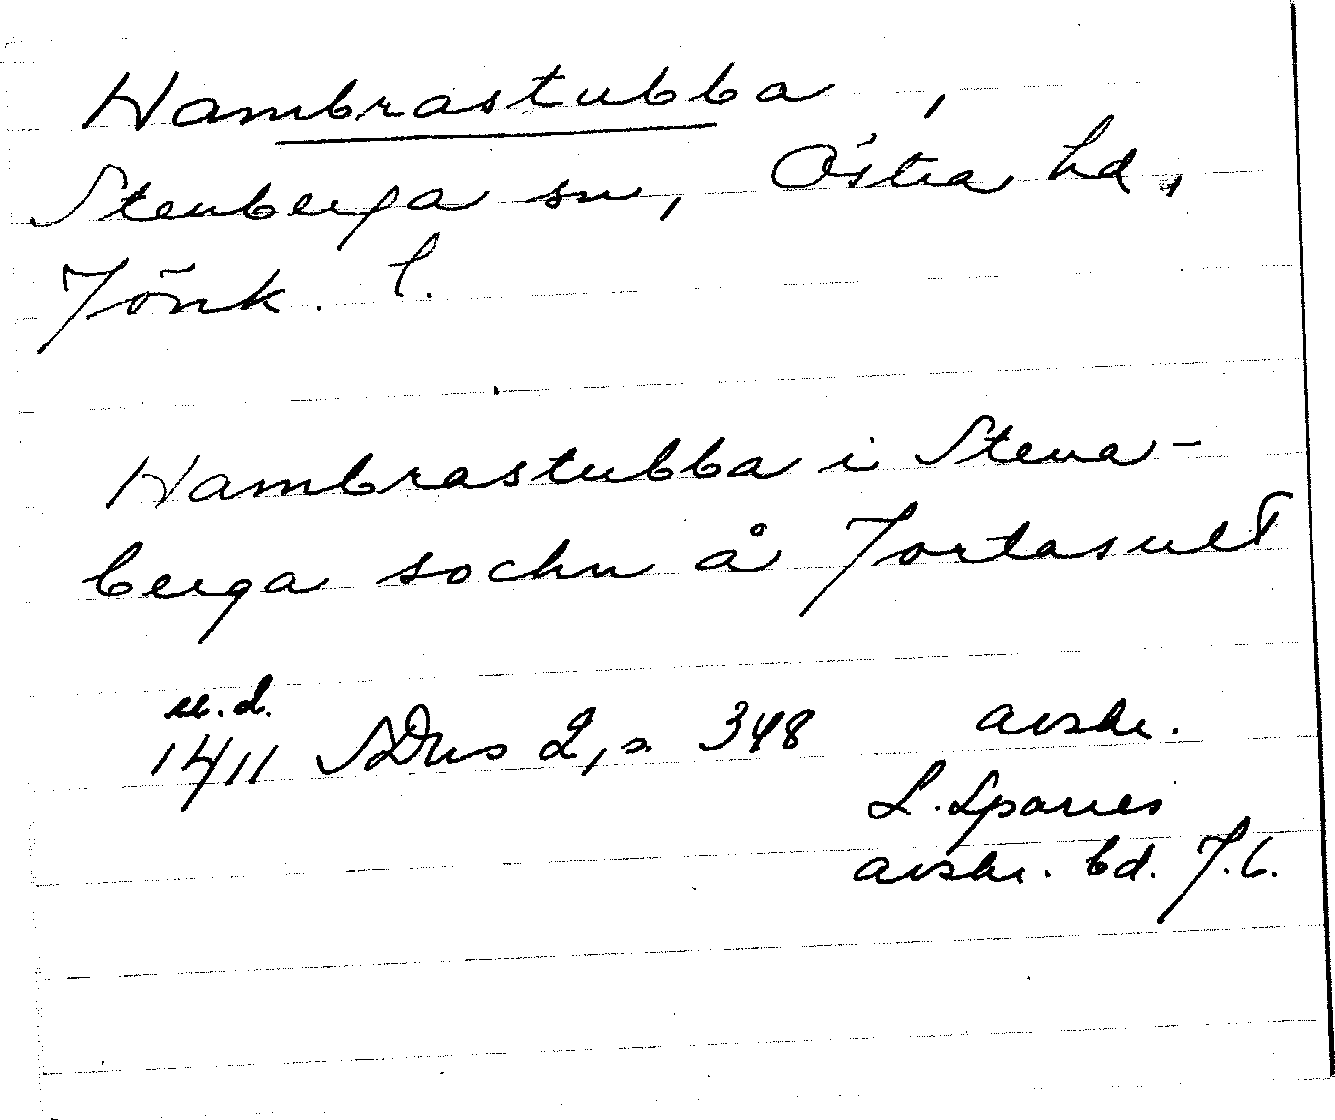 Hambrastubba,
Stenberga sn, Östra hd,
Jönk. l.
Hambrastubba i Stena-
berga sochn å Jortasult
u.d.
1411 SDns 2, s 348 avskr.
L. Sparres
avskr. bd. J. C.